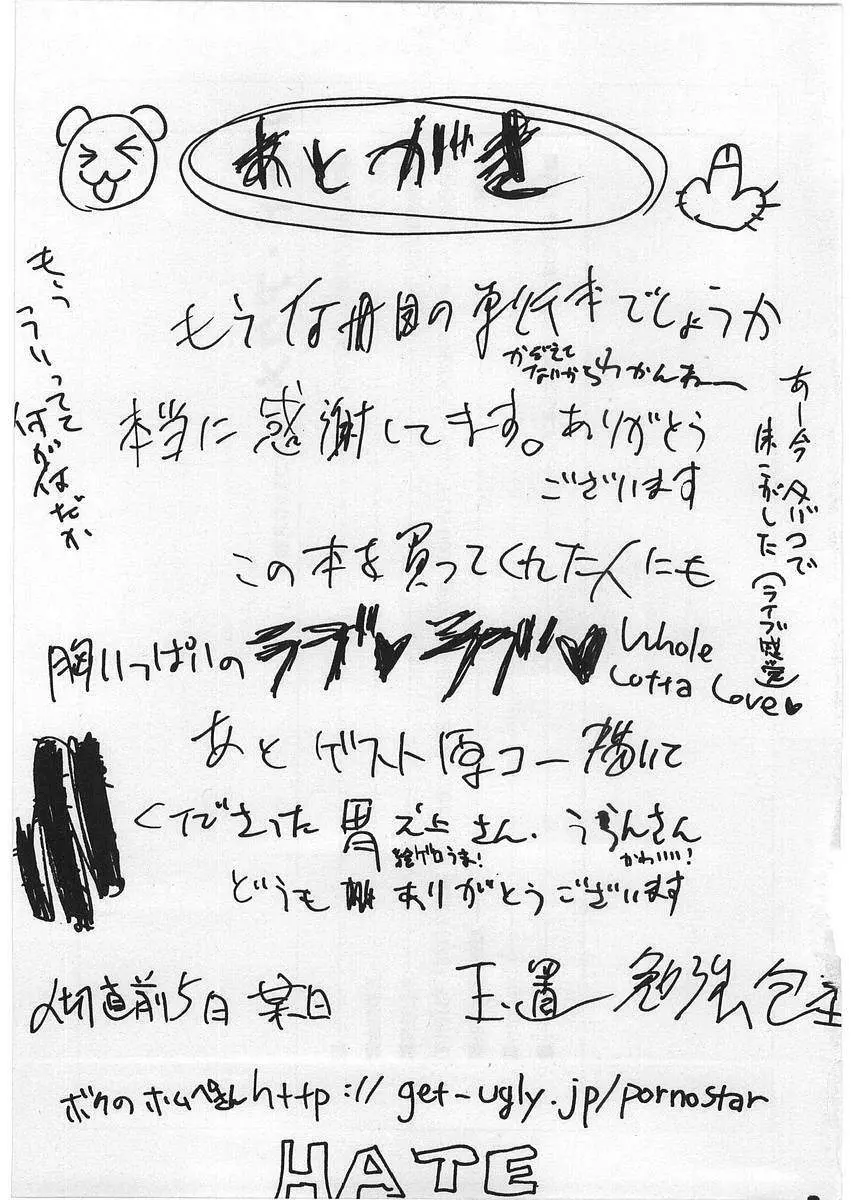 あとがき
もう何冊目の単行本でしょうか
かぞえて
ないからわかんねー
もう
こういってて
何が何だか
本当に感謝してます。ありがとう
ございます
あー今タバコで
床こがした(ライブ感覚)
この本を買ってくれた人にも
胸いっぱいのラブ♥ラブ♥ Whole
Lotta Love♥
あとゲスト原コー描いて
くださった胃之上さん、うらんさん
絵ゲロうま!
かわいい!
どうもありがとうございます
〆切直前5日
玉置勉強
ボクのホムペさんhttp://get-ugly.jp/pornostar
HATE